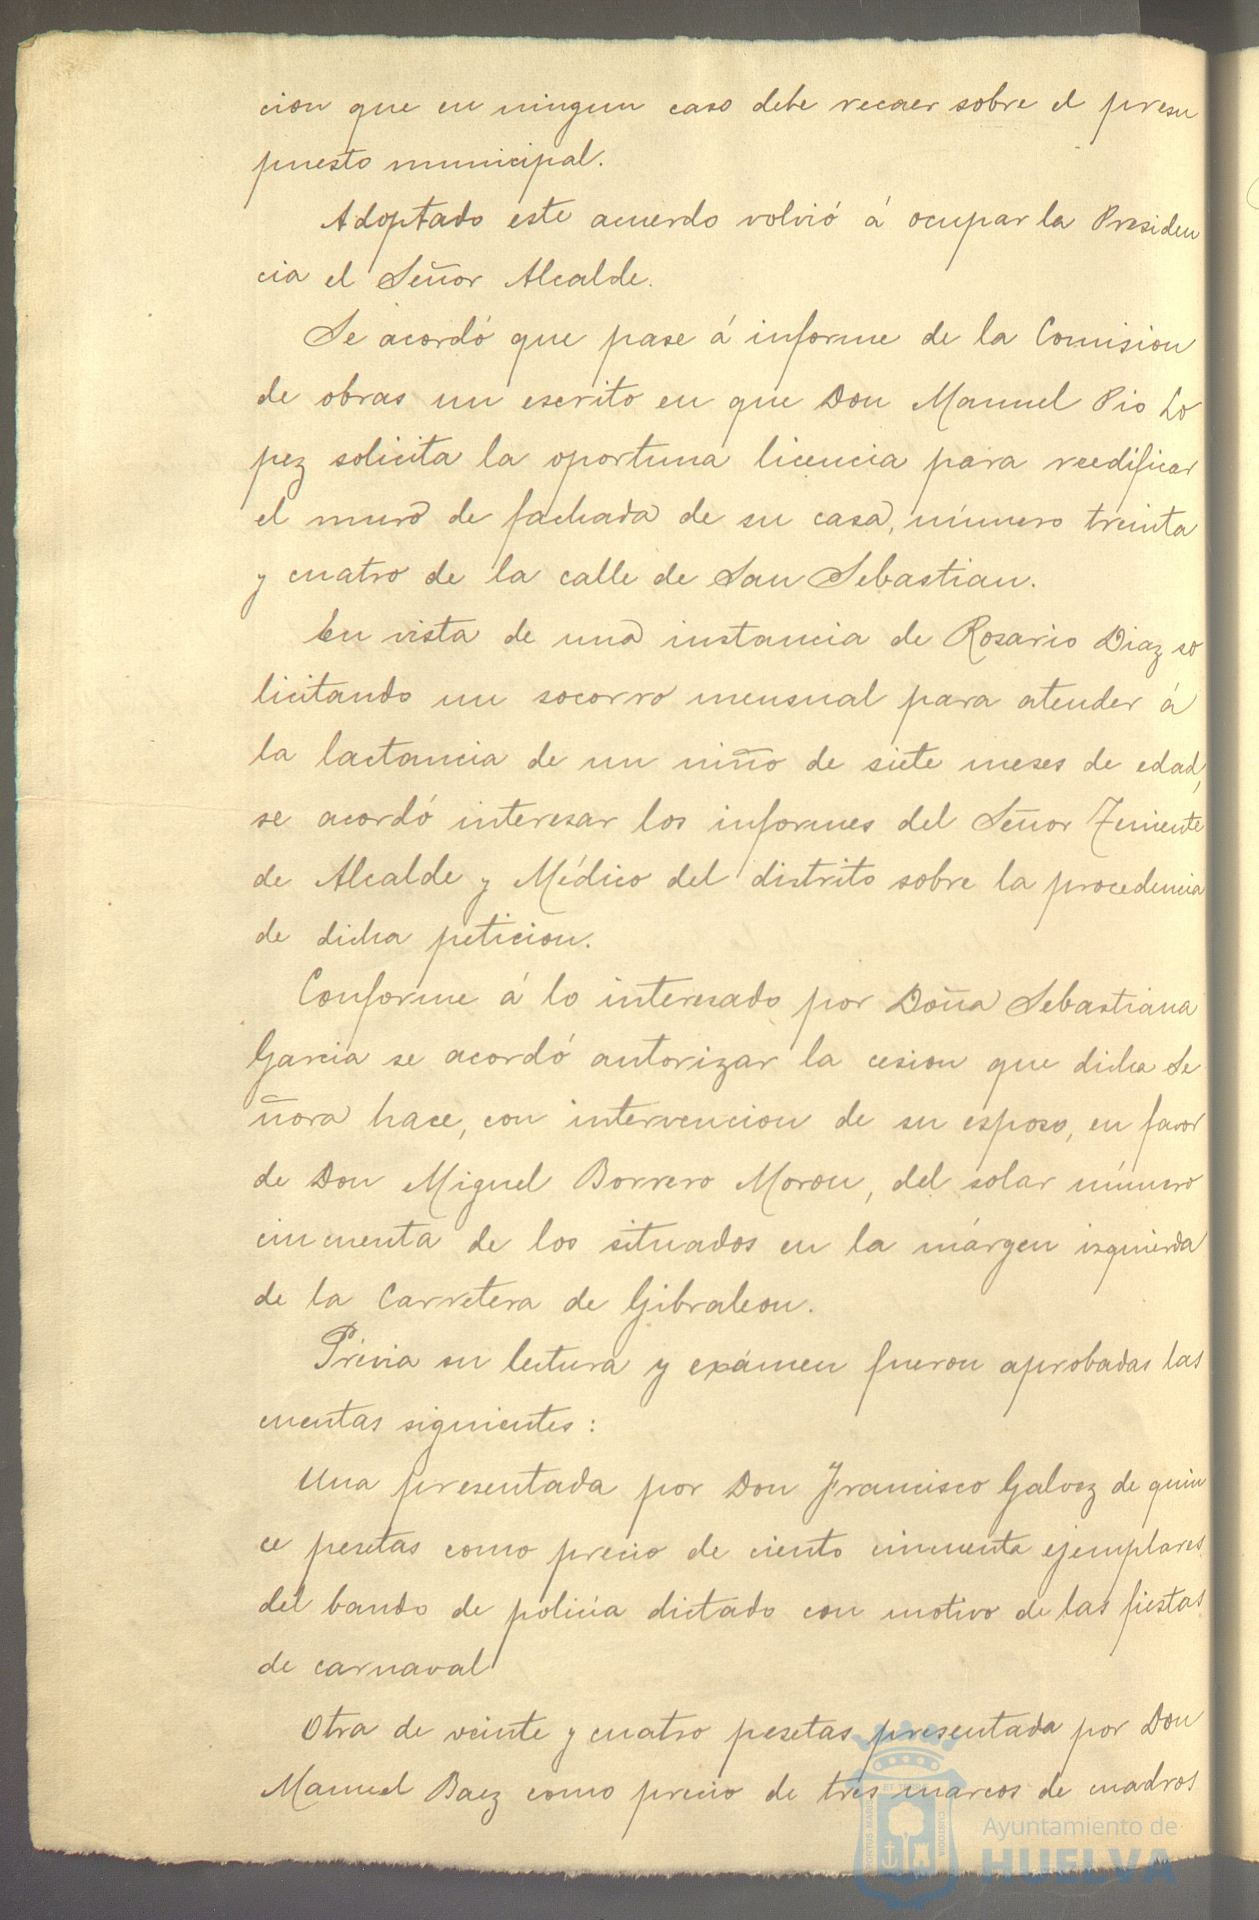 cion que en ningun caso debe recaer sobre el presu
puesto municipal.
Adoptado este acuerdo volvió á ocupar la Presiden
cia el Señor Alcalde.
Se acordó que pase á informe de la Comision
de obras un escrito en que Don Manuel Pio Lo
pez solicita la oportuna licencia para reedificar
el muro de fachada de su casa, número treinta
y cuatro de la calle de San Sebastian.
En vista de una instancia de Rosario Diaz so
licitando un socorro mensual para atender á
la lactancia de un niño de siete meses de edad,
se acordó interesar los informes del Señor Teniente
de Alcalde y Médico del distrito sobre la procedencia
de dicha peticion.
Conforme á lo interesado por Doña Sebastiana
Garcia se acordó autorizar la cesion que dicha Se
ñora hace, con intervencion de su esposo, en favor
de Don Miguel Borrero Moron, del solar número
cincuenta de los situados en la márgen izquierda
de la Carretera de Gibraleon.
Prévia su lectura y exámen fueron aprobadas las
cuentas siguientes:
Una presentada por Don Francisco Galvez de quin
ce pesetas como precio de ciento cincuenta ejemplares
del bando de policia dictado con motivo de las fiestas
de carnaval
Otra de veinte y cuatro pesetas presentada por Don
Manuel Baez como precio de tres marcos de cuadros
Ayuntamiento de
HUELVA